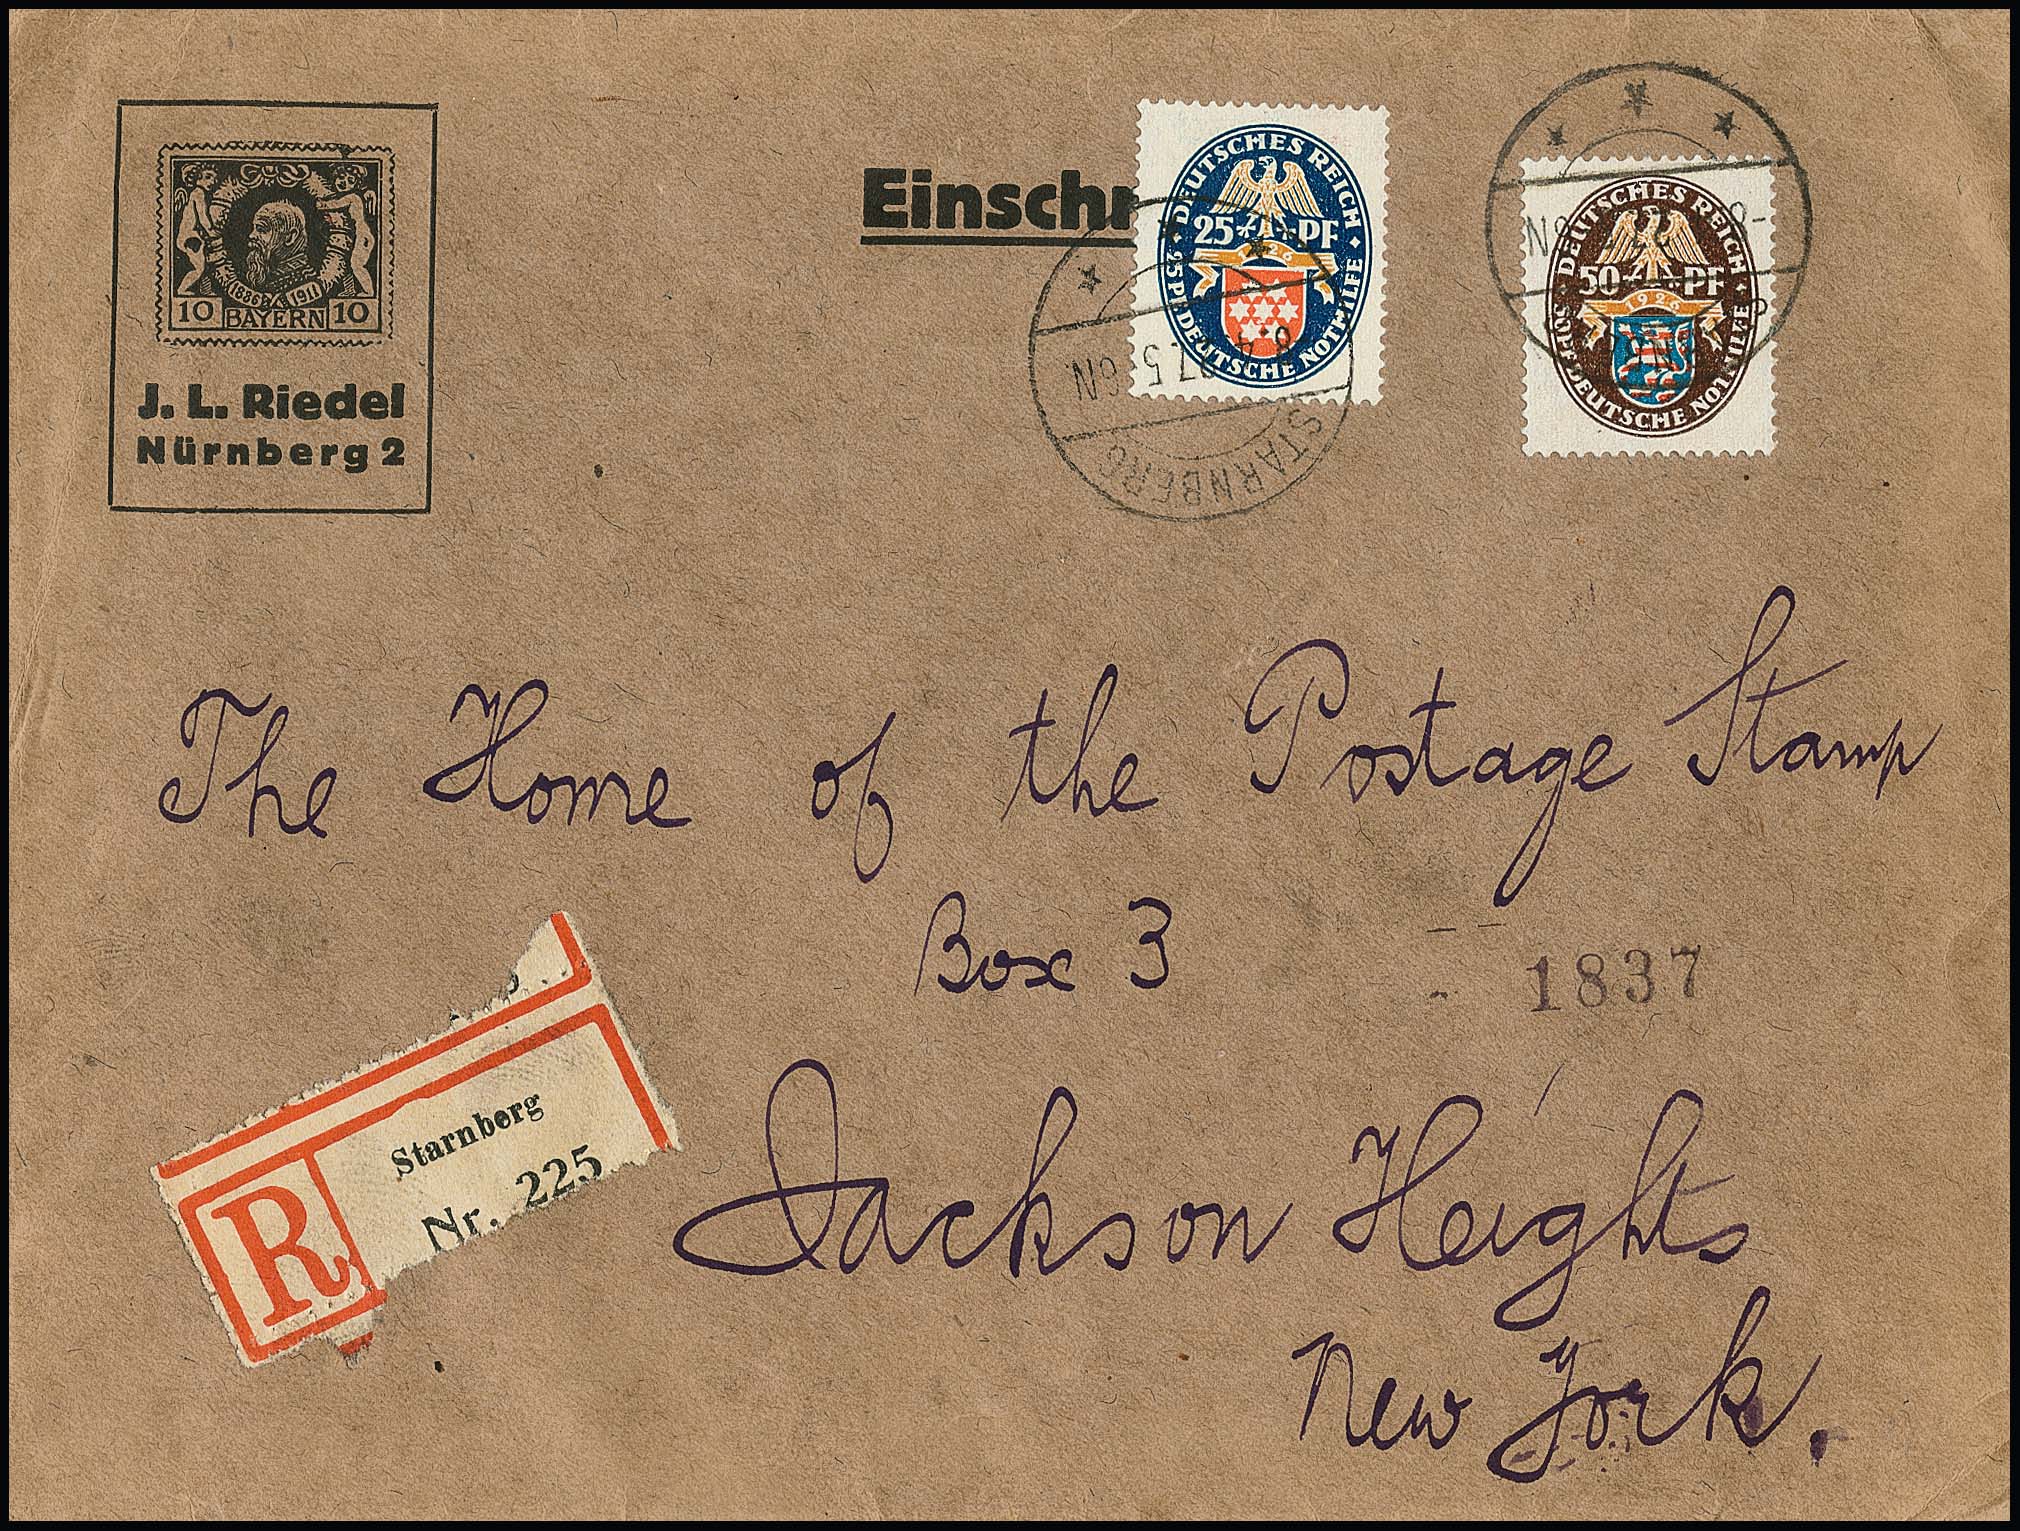 1886 1911
10 BAYERN 10
J. L. Riedel
Nürnberg 2
Einschr
DEUTSCHES REICH
25 + PF
1926
25 PF. DEUTSCHE NOTHILFE
8.4.27 5-6N
STARNBERG
DEUTSCHES REICH
50 + PF
1926
50 PF. DEUTSCHE NOTHILFE
The Home of the Postage Stamp
Box 3
1837
Jackson Heights
New York.
R
Starnberg
Nr. 225